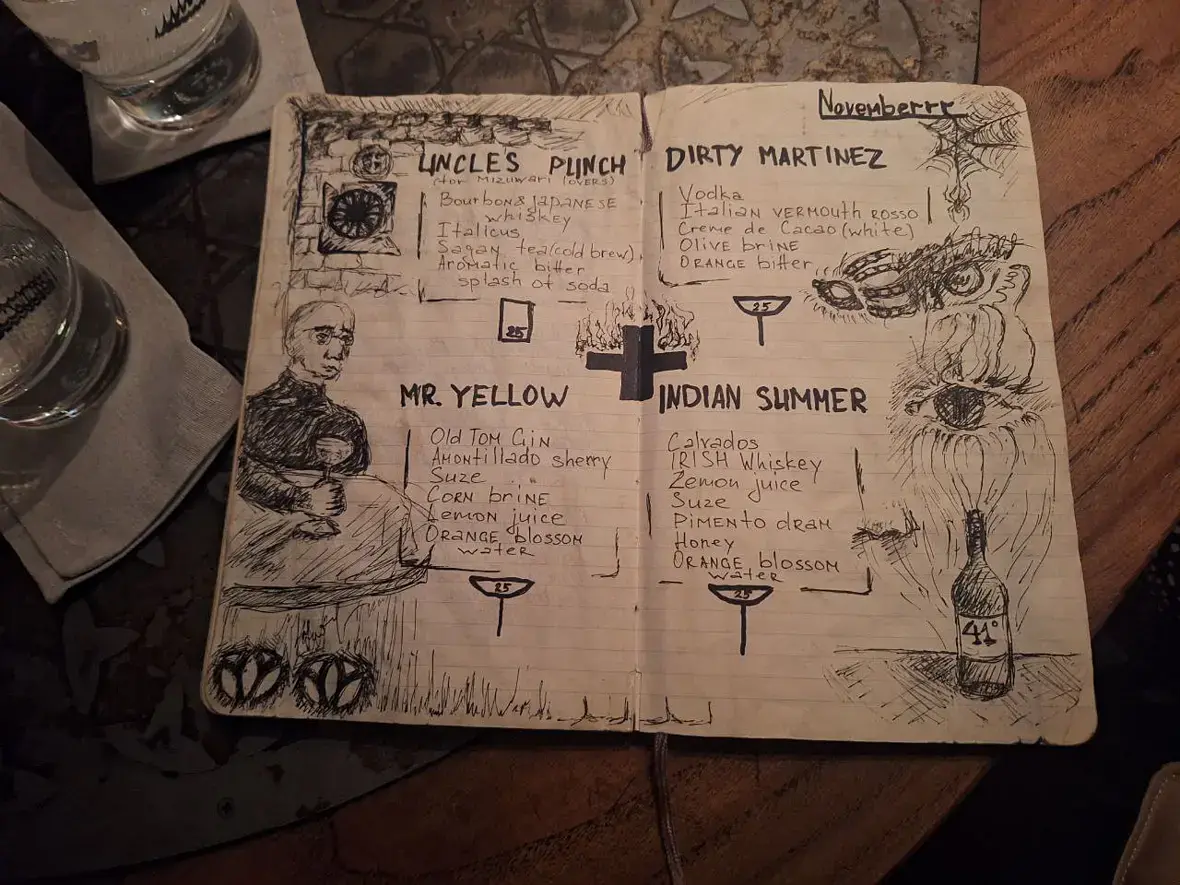 Novemberrr
UNCLES PUNCH
(for Mizuwari lovers)
Bourbon & JAPANESE
whiskey
Italicus
Sagan tea (cold brew)
Aromatic bitter
splash of soda
25
DIRTY MARTINEZ
Vodka
Italian VERMOUTH ROSSO
Creme de Cacao (white)
Olive brine
ORANGE bitter
25
MR. YELLOW
Old TOM GIN
AMONTIllado sherry
Suze
CORN brine
Lemon juice
ORANGE blossom
water
25
INDIAN SUMMER
Calvados
IRISH Whiskey
Lemon juice
Suze
PIMENTO dram
Honey
ORANGE blossom
water
25
41°